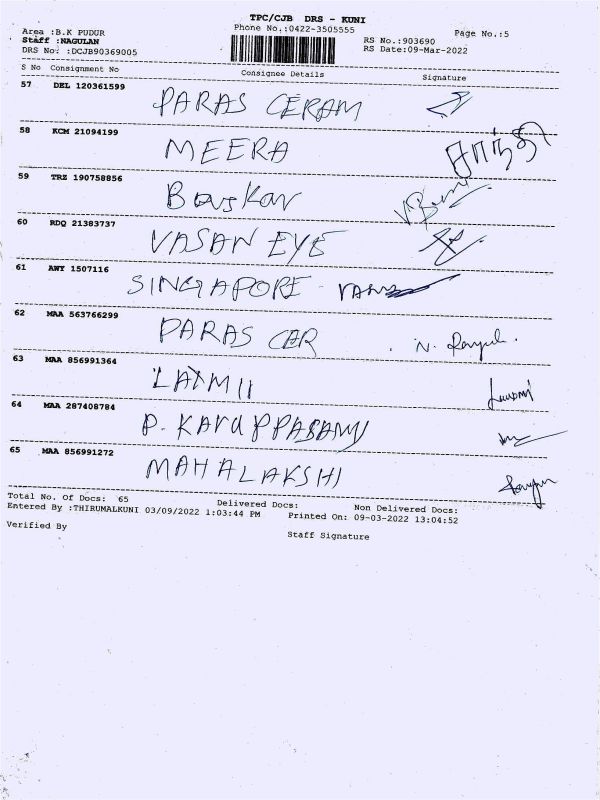 TPC/CJB DRS - KUNI
Area :B.K PUDUR Phone No.:0422-3505555 Page No.:5
Staff :NAGULAN RS No.:903690
DRS No: :DCJB90369005 RS Date:09-Mar-2022
S No Consignment No Consignee Details Signature
57 DEL 120361599 PARAS CERAM
58 KCM 21094199 MEERA சாந்தி
59 TRZ 190758856 Baskar
60 RDQ 21383737 VASAN EYE
61 ANY 1507116 SINGAPORE
62 MAA 563766299 PARAS CER
63 MAA 856991364 LAXMII
64 MAA 287408784 P. KARUPPASAMY
65 MAA 856991272 MAHALAKSHI
Total No. Of Docs: 65 Delivered Docs: Non Delivered Docs:
Entered By :THIRUMALKUNI 03/09/2022 1:03:44 PM Printed On: 09-03-2022 13:04:52
Verified By Staff Signature